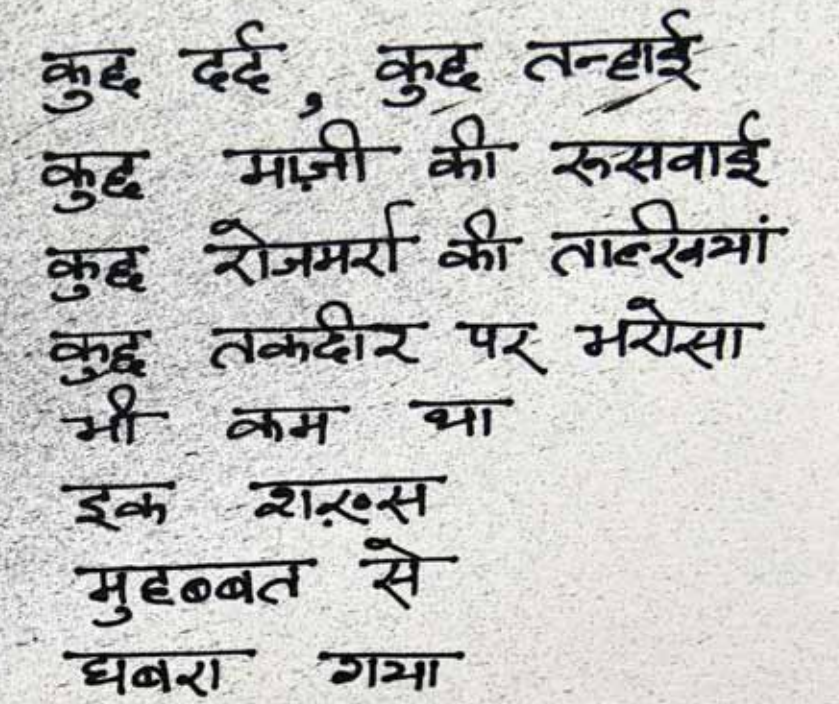 कुछ दर्द , कुछ तन्हाई
कुछ माज़ी की रूसवाई
कुछ रोजमर्रा की ताल्खियां
कुछ तकदीर पर भरोसा
भी कम था
इक शख़्स
मुहब्बत से
घबरा गया